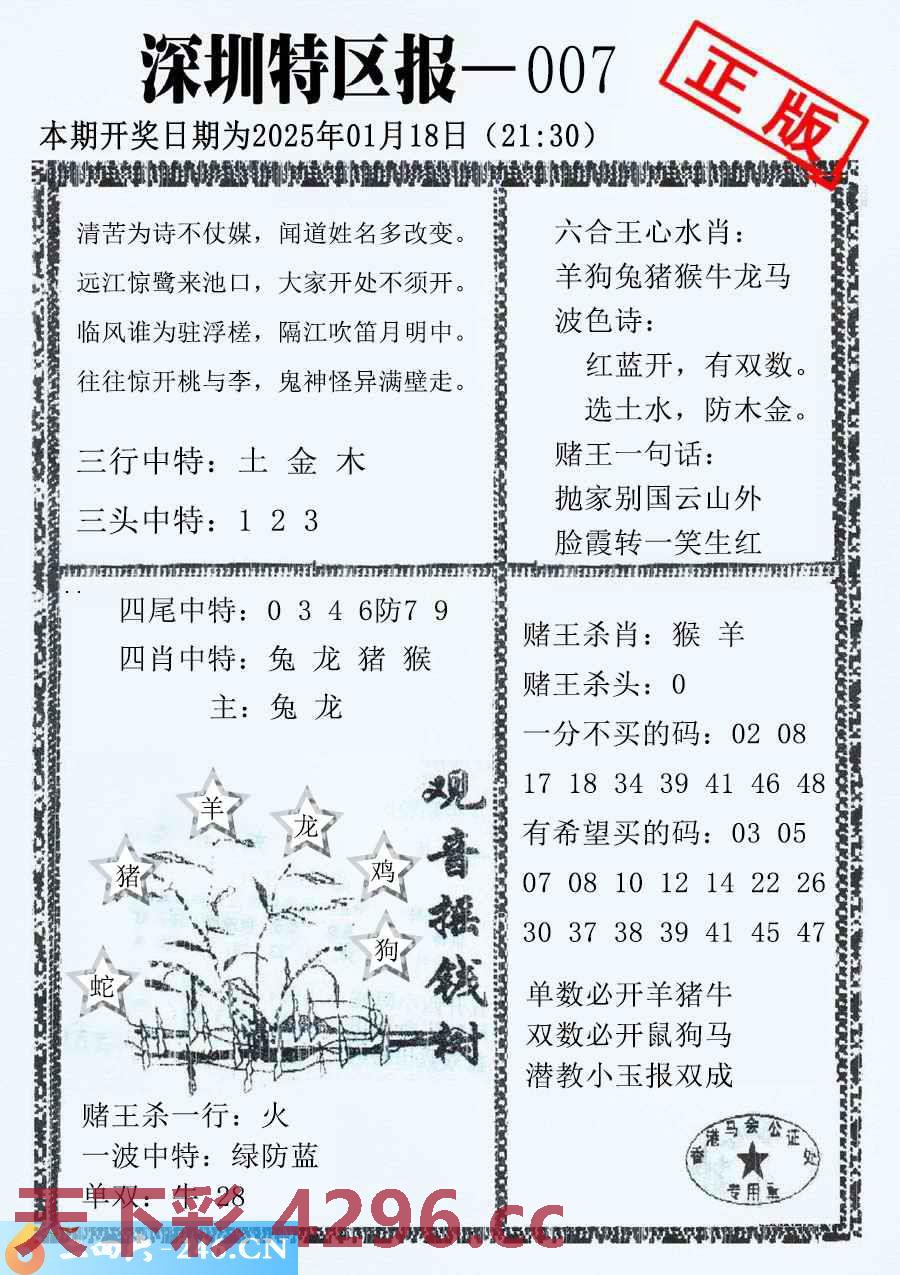 深圳特区报—007
正版
本期开奖日期为2025年01月18日（21:30）
清苦为诗不仗媒，闻道姓名多改变。
远江惊鹭来池口，大家开处不须开。
临风谁为驻浮槎，隔江吹笛月明中。
往往惊开桃与李，鬼神怪异满壁走。
三行中特：土 金 木
三头中特：1 2 3
六合王心水肖：
羊狗兔猪猴牛龙马
波色诗：
红蓝开，有双数。
选土水，防木金。
赌王一句话：
抛家别国云山外
脸霞转一笑生红
四尾中特：0 3 4 6防7 9
四肖中特：兔 龙 猪 猴
主：兔 龙
观音摇钱树
羊
龙
猪
鸡
狗
蛇
赌王杀一行：火
一波中特：绿防蓝
单双：牛 28
赌王杀肖：猴 羊
赌王杀头：0
一分不买的码：02 08
17 18 34 39 41 46 48
有希望买的码：03 05
07 08 10 12 14 22 26
30 37 38 39 41 45 47
单数必开羊猪牛
双数必开鼠狗马
潜教小玉报双成
香港马会公证处
专用章
天下彩 4296.cc
246.CN